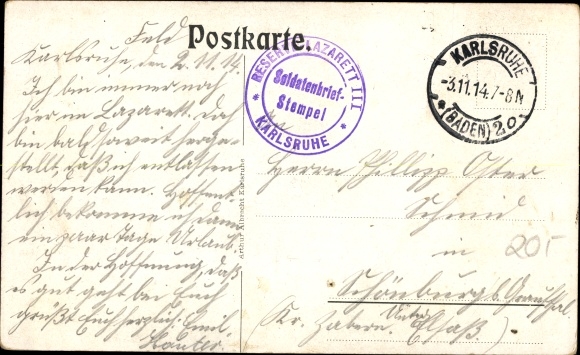 Feld
Postkarte.
Karlsruhe, den 2.11.14.
Ich bin immer noch
hier im Lazarett. Doch
bin bald soweit herge-
stellt, daß ich entlassen
werden kann. Hoffent-
lich bekomme ich dann
ein paar Tage Urlaub.
In der Hoffnung, daß
es gut geht bei Euch
grüßt Euch herzlich Emil
RESERVE LAZARETT III
Soldatenbrief-
Stempel
KARLSRUHE
KARLSRUHE
-3.11.14.7-8N
(BADEN) 2o
Arthur Albrecht Karlsruhe
Herrn Philipp Oster
Schmid
in
20.-
Schönburg b.
Kr. Zabern. (Unter Elsaß.)